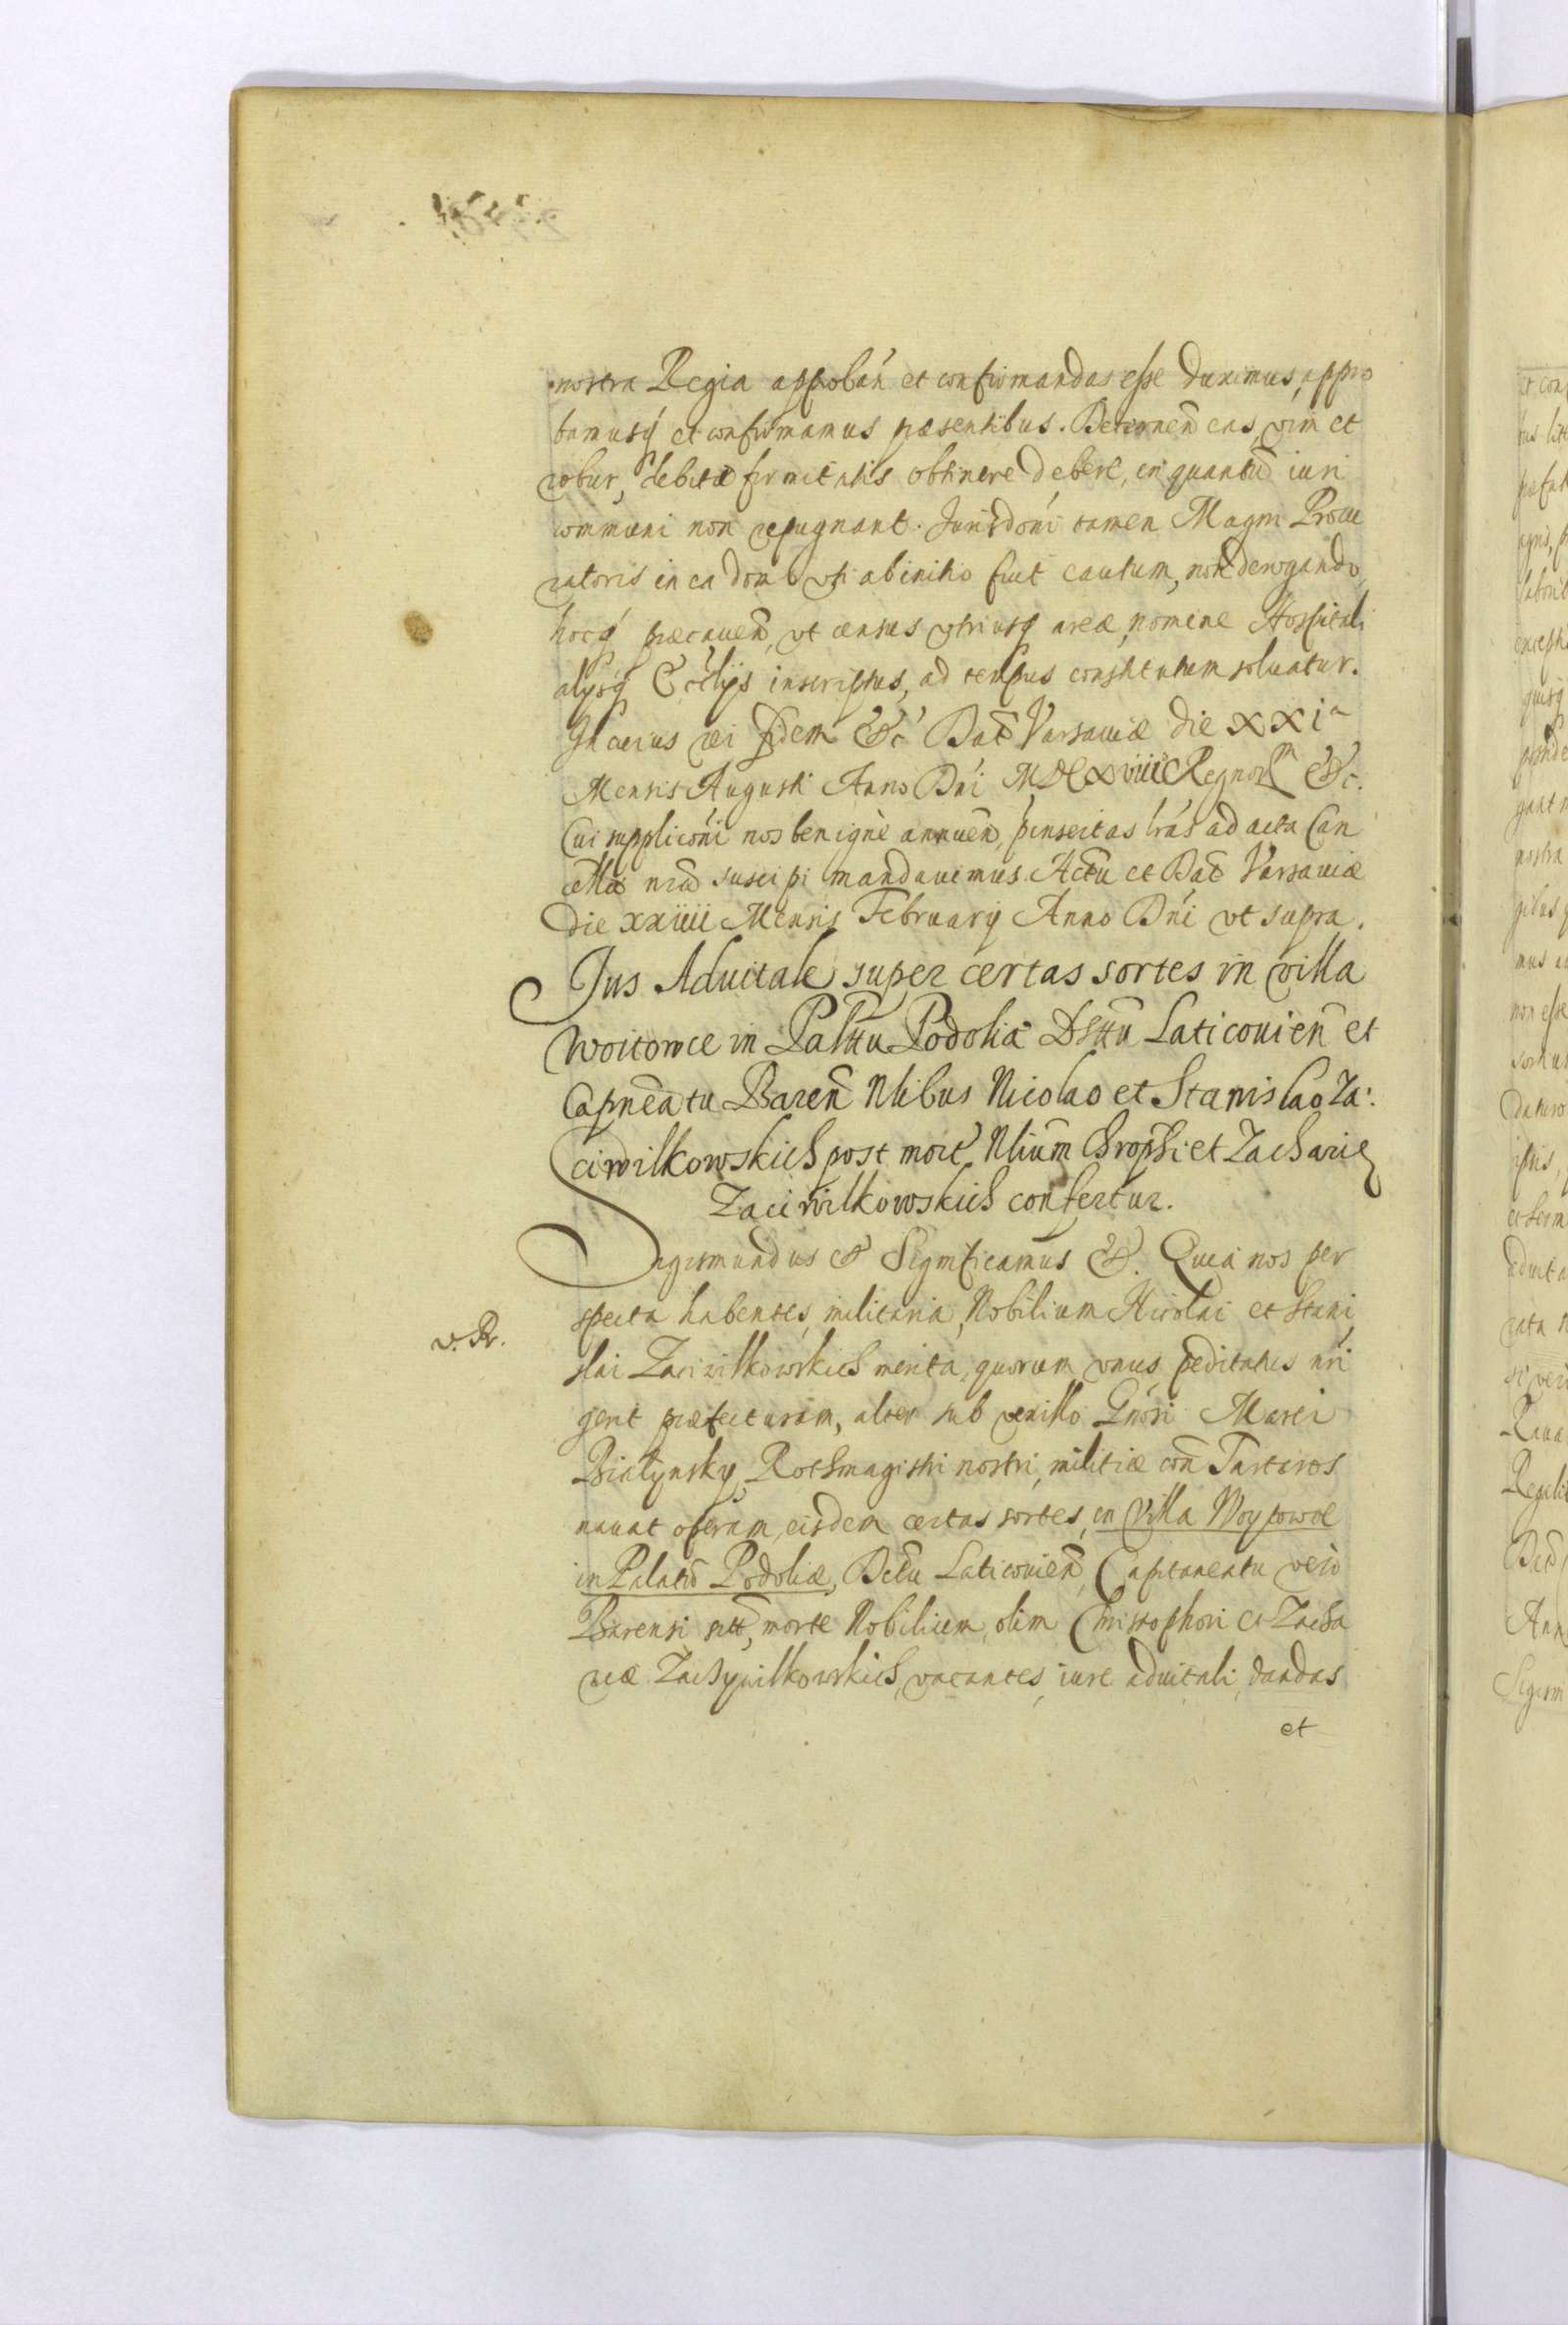 nostra Regia approbań et confirmandas esse duximus, appro
bamusq́ et confirmamus præsentibus. Decernen̄ eas, vim et
robur, debitæ firmitatis obtinere debere, in quantū iuri
communi non repugnant. Jurisdońi tamen Magni Procu
ratoris in ea domo vti ab initio fuit cautum, non derogando,
hocq́ præcauen̄, vt census vtriusq́ areæ, nomine Hospitali
alijsq́ Ecclijs inscriptus, ad tempus constitutum soluatur.
In cuius rei fidem &c Dat̄ Varsauiæ die XXIa
Mensis Augusti Anno Dńi MDCXviiii Regnor̄m &c.
Cui supplicońi nos benignè annuen̄, pinsertas lrás ad acta Can
cellæ nr̄æ suscipi mandauimus. Actū et Dat̄ Varsauiæ
die xxiiii Mensis February Anno Dńi vt supra.
Jus Aduitale super certas sortes in villa
Woitowce in Pallttu Podoliæ Dsttū Laticouien̄ et
Capnēatu Baren̄ Nlibus Nicolao et Stanislao Za:
ciwilkowskich post mort̄ Nlium̄ Chrophi et Zachariæ
Zaciwilkowskich confertur.
Sigismundus &c Significamus &c. Quia nos per
specta habentes, militaria, Nobilium Nicolai et Stani
v. Pr.
slai Zaciwilkowskich merita, quorum vnus, peditatus nŕi
gerit præfecturam, alter sub vexillo Gnósi Marci
Białynsky, Rothmagistri nostri, militiæ con̄ Tartaros
nauat operam, eisdem certas sortes, in Villa Woytowce
in Palatū Podoliæ, Dctū Laticouien̄, Capitaneatu verò
Barensi sitt̄, morte Nobilium, olim Christophori et Zacha
riæ Zachywilkowskich, vacantes, iure aduitali, dandas
et